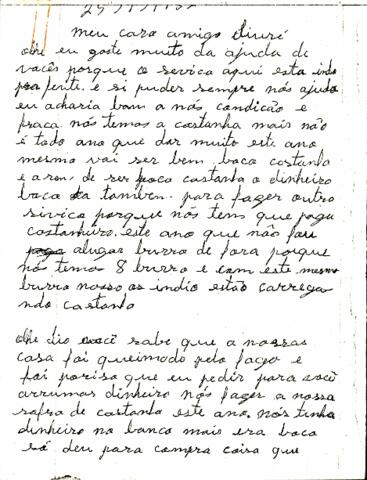 meu caro amigo
olhe eu goste muito da ajuda de
vocês porque o servica aqui esta indo
pra frenti e si puder sempre nós ajuda
eu acharia bom a nós condicão e
praca nós temos a castanha mais não
é todo ano que dar muito este ano
mesmo vai ser bem poca castanha
e de ser poca castanha o dinheiro
tambem para fazer outro
sirvica porque nós tem que paga
castanheiro este ano que não fau
alugar burro de fora porque
nós temos 8 burro e com este mesmo
burro nosso os indio estão carrega
ndo castanha
olhe dio você sabe que a nossas
casa foi queimado pelo fogo e
foi porisa que eu pedir para você
arrumas dinheiro nós fazer a nossa
safra de castanha este ano nós tinha
dinheiro no banco mais era poca
só deu para compra coisa que